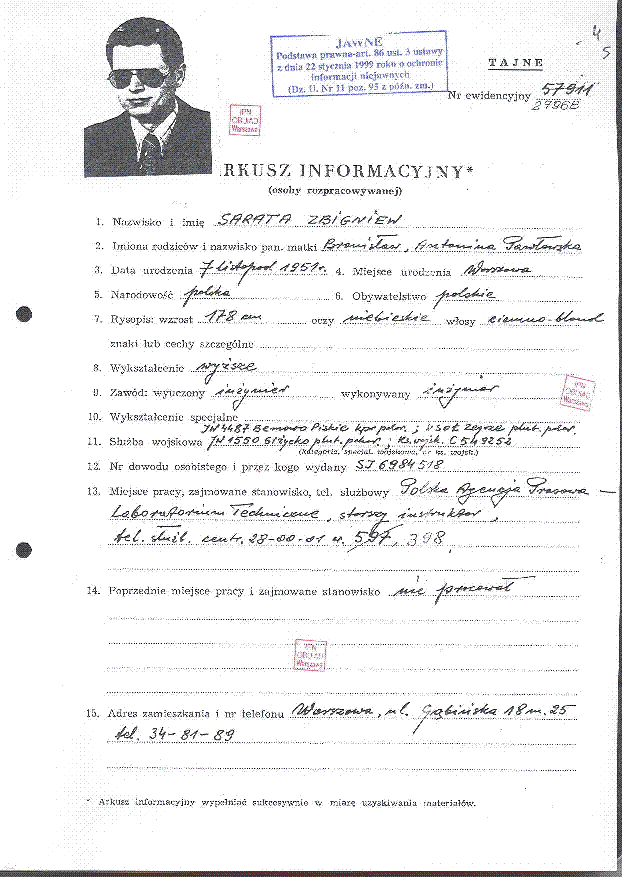 4
5
JAWNE
Podstawa prawna-art. 86 ust. 3 ustawy
z dnia 22 stycznia 1999 roku o ochronie
informacji niejawnych
(Dz. U. Nr 11 poz. 95 z późn. zm.)
TAJNE
Nr ewidencyjny 57911
27968
IPN
OBUiAD
Warszawa
RKUSZ INFORMACYJNY*
(osoby rozpracowywanej)
1. Nazwisko i imię SARATA ZBIGNIEW
2. Imiona rodziców i nazwisko pan. matki Bronisław, Antonina Pawłowska
3. Data urodzenia 7 listopad 1951 r. 4. Miejsce urodzenia Warszawa
5. Narodowość polska 6. Obywatelstwo polskie
7. Rysopis: wzrost 178 cm oczy niebieskie włosy ciemno-blond
znaki lub cechy szczególne
8. Wykształcenie wyższe
9. Zawód: wyuczony inżynier wykonywany inżynier
IPN
OBUiAD
Warszawa
10. Wykształcenie specjalne
JW 4487 Bemowo Piskie kpr. pchor.; WSOŁ Zegrze plut. pchor.
11. Służba wojskowa JW 1550 Giżycko plut. pchor.; ks. wojsk. C 549252
(kategoria, specjal. wojskowa, nr ks. wojsk.)
12. Nr dowodu osobistego i przez kogo wydany SJ 6984518
13. Miejsce pracy, zajmowane stanowisko, tel. służbowy Polska Agencja Prasowa –
Laboratorium Techniczne, starszy instruktor,
tel. służb. centr. 28-00-01 w. 597, 398
14. Poprzednie miejsce pracy i zajmowane stanowisko nie pracował
IPN
OBUiAD
Warszawa
15. Adres zamieszkania i nr telefonu Warszawa, ul. Gąbińska 18 m. 25
tel. 34-81-89
* Arkusz informacyjny wypełniać sukcesywnie w miarę uzyskiwania materiałów.